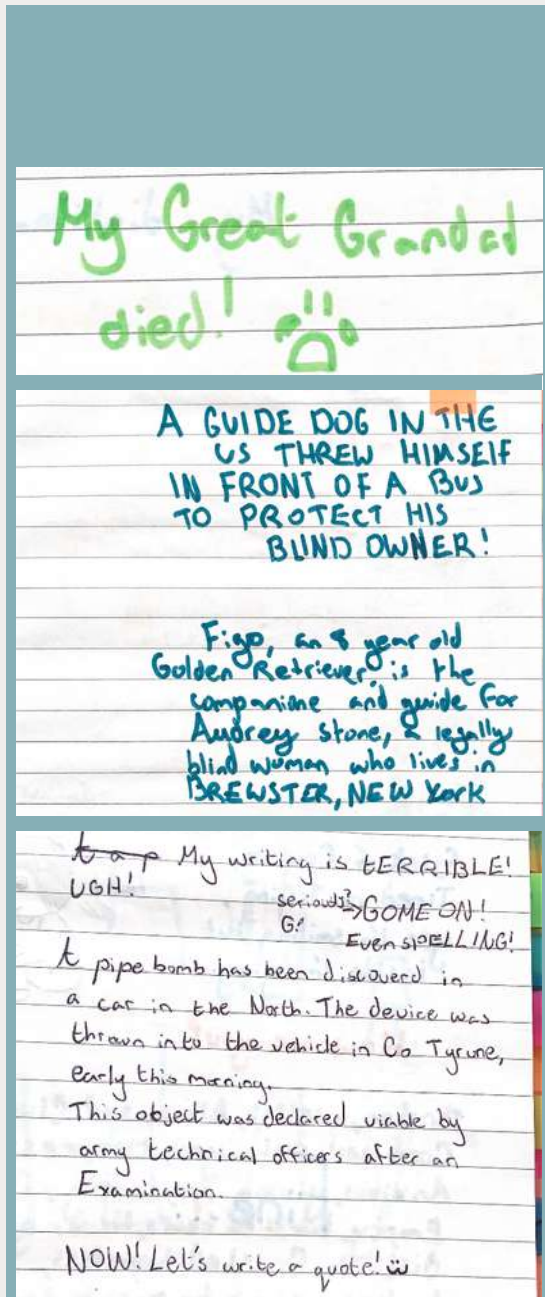 My Great Grandad
died!
A GUIDE DOG IN THE
US THREW HIMSELF
IN FRONT OF A BUS
TO PROTECT HIS
BLIND OWNER!
Figo, an 8 year old
Golden Retriever, is the
companione and guide for
Audrey Stone, a legally
blind woman who lives in
BREWSTER, NEW York
My writing is tERRIBLE!
UGH!
seriously? →GOME ON!
G!
Even SPELLING!
A pipe bomb has been discoverd in
a car in the North. The device was
thrown into the vehicle in Co Tyrone,
early this morning.
This object was declared viable by
army technical officers after an
Examination.
NOW! Let's write a quote!